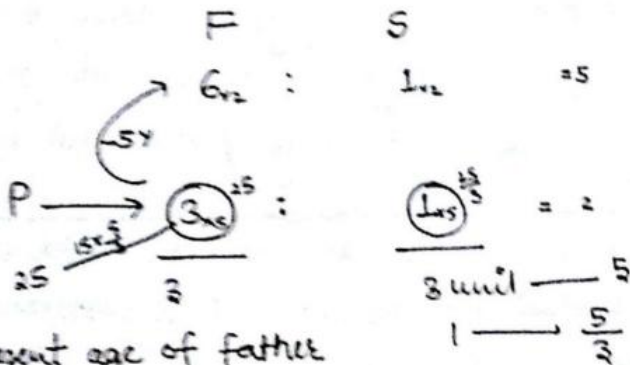 F S
6×2 : 1×2 =5
-5Y
P → 3×5 25 : 1×5 25/3 = 2
15×5/3
25 3
3 unit — 5
1 → 5/3
age of father